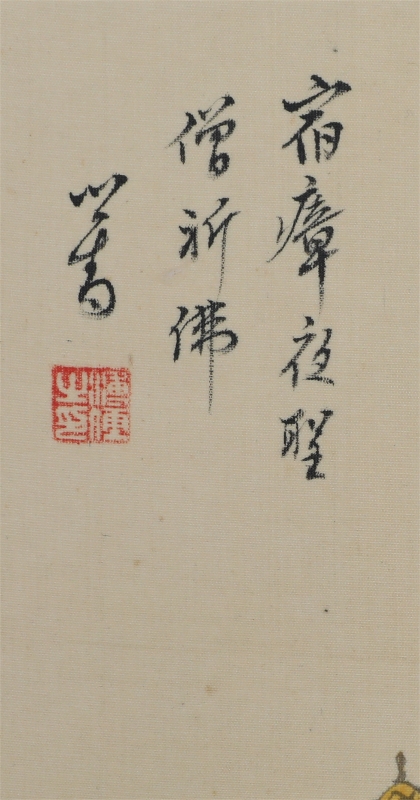 宿瘴夜聖
僧祈佛
心畬
溥儒
之印